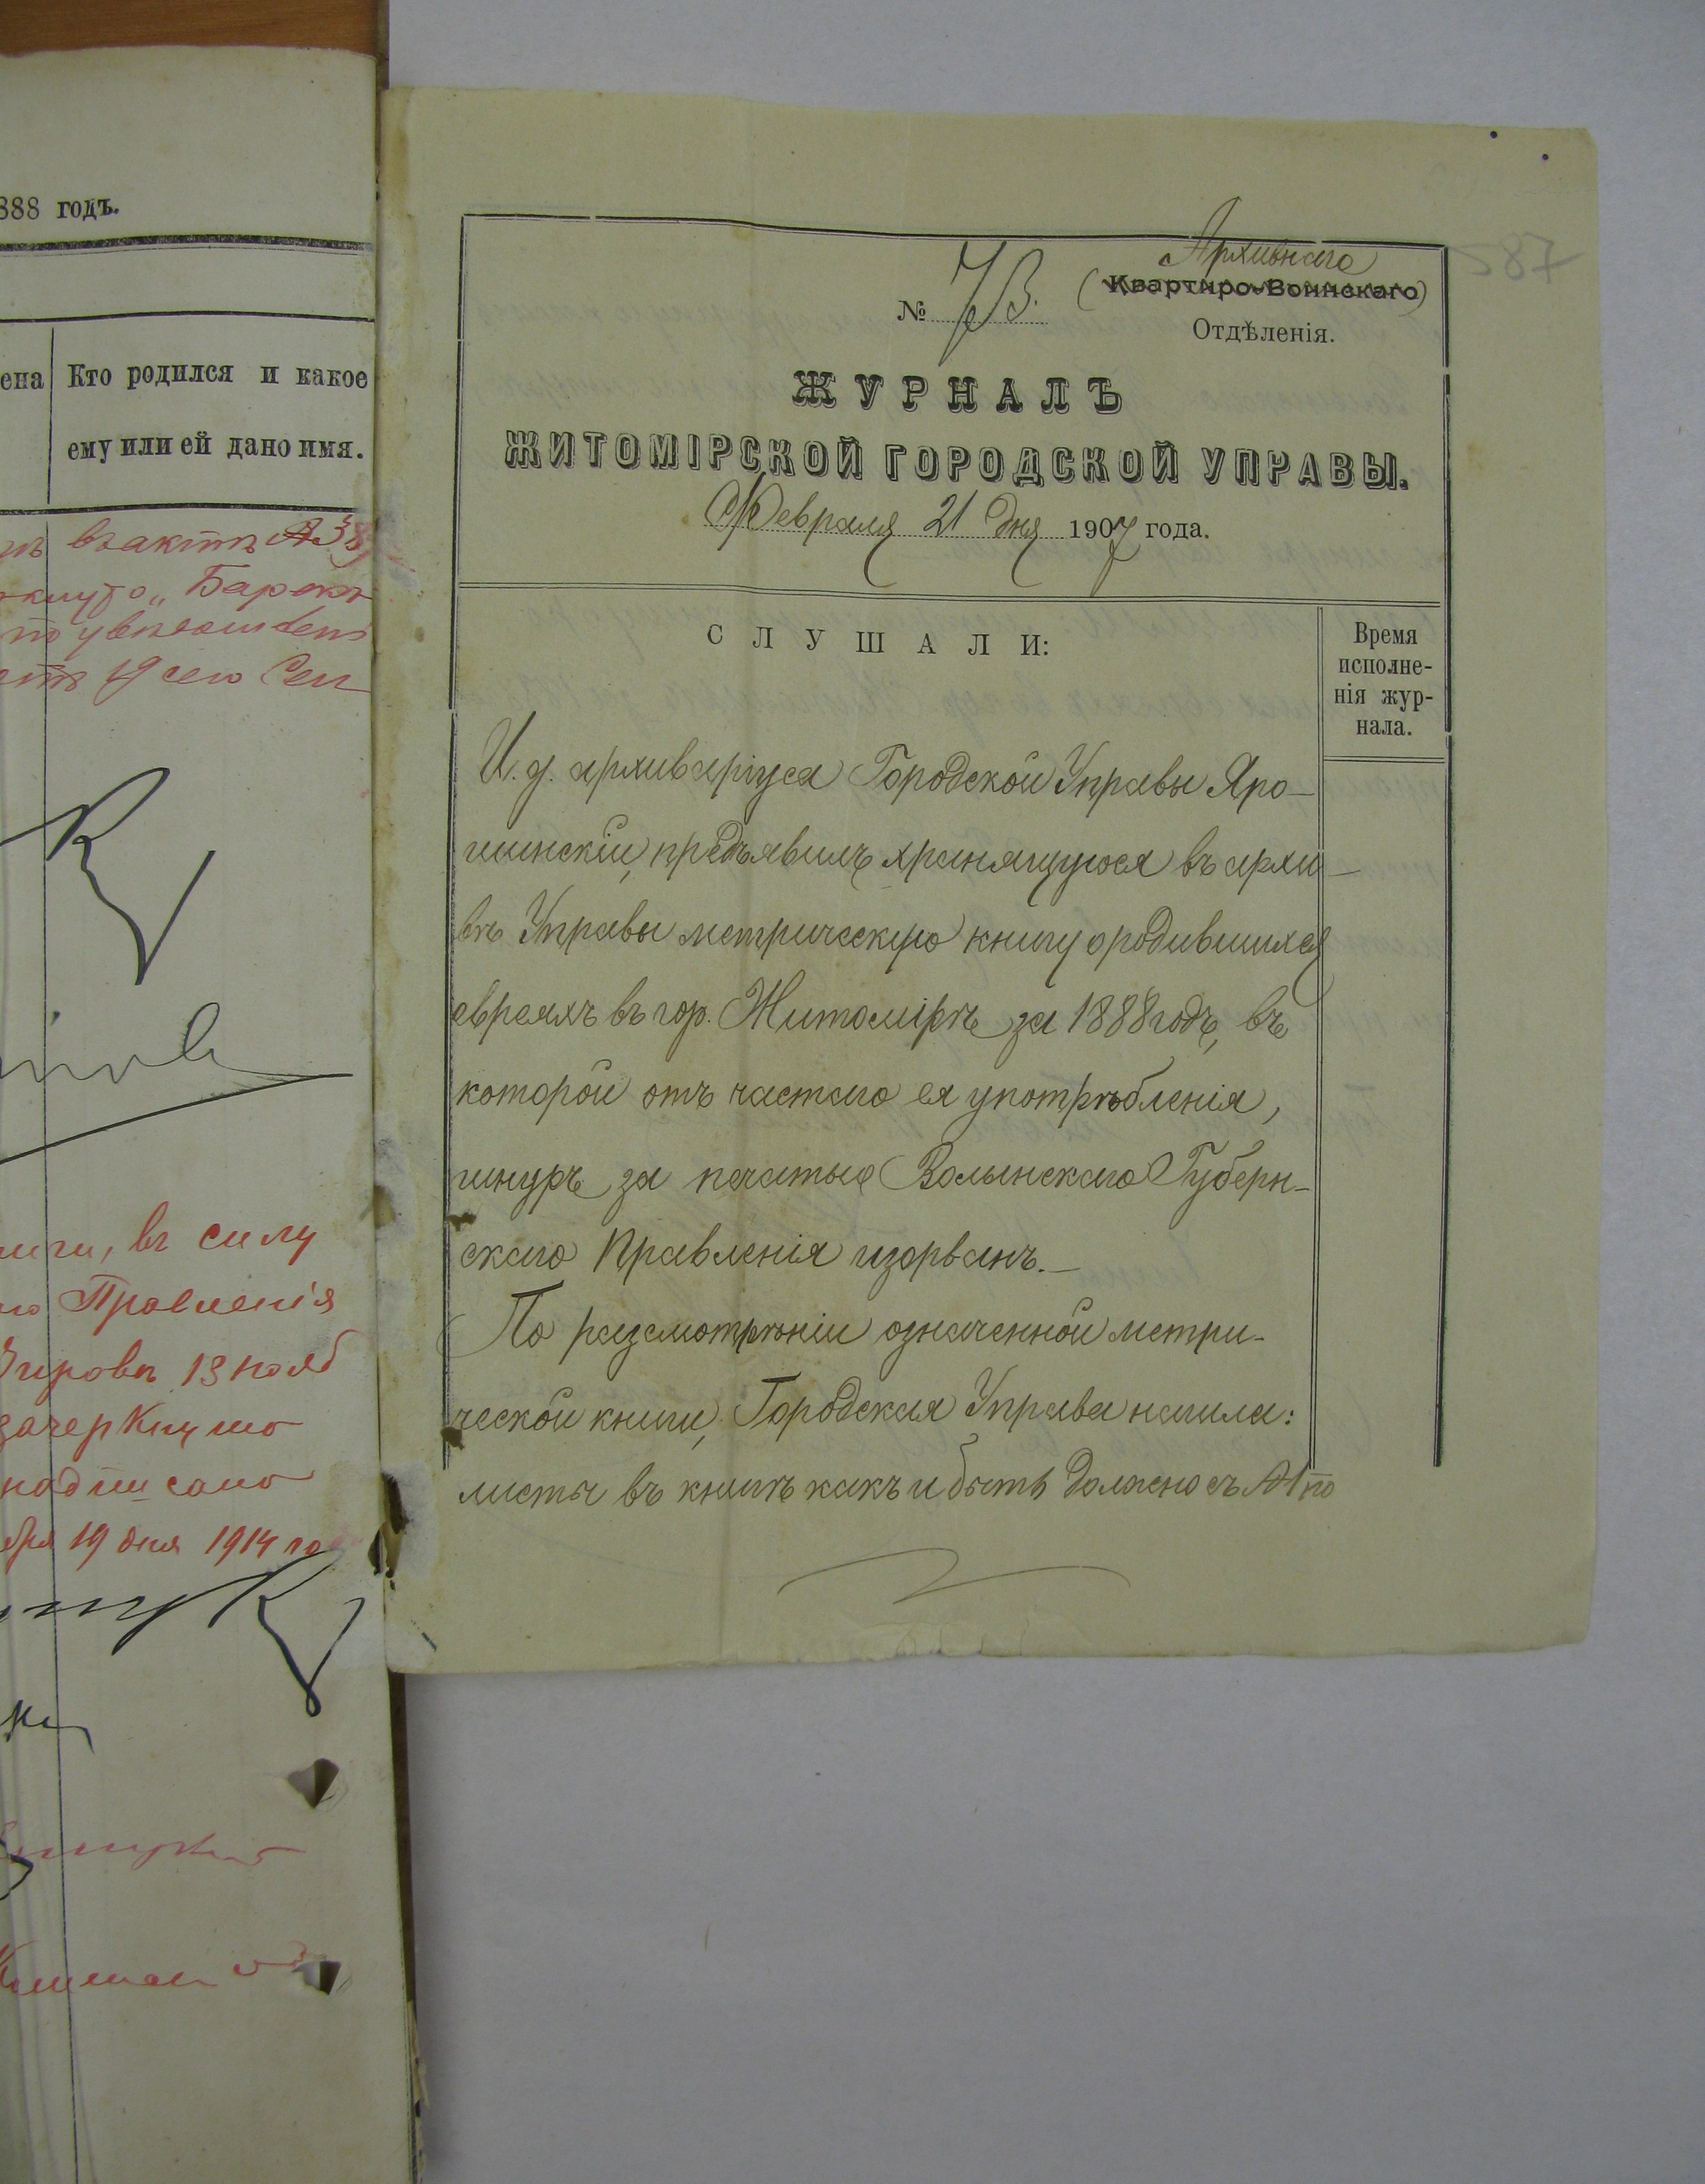 888 годъ.
ена
Кто родился и какое
ему или ей дано имя.
въ актѣ № 38
"Барокъ
сего Сен
въ силу
Правленія
13 нояб
зачеркнуто
надписано
бря 19 дня 1914 го
87
№ 73.
Архивнаго
(Квартиро-Воинскаго)
Отдѣленія.
ЖУРНАЛЪ
ЖИТОМІРСКОЙ ГОРОДСКОЙ УПРАВЫ.
Февраля 21 дня 1907 года.
СЛУШАЛИ:
Время
исполне-
нія жур-
нала.
И. д. архиваріуса Городской Управы Яро-
шинскій, предъявилъ хранящуюся въ архи-
вѣ Управы метрическую книгу о родившихся
евреяхъ въ гор. Житомірѣ за 1888 годъ, въ
которой отъ частаго ея употрѣбленія,
шнуръ за печатью Волынскаго Губерн-
скаго Правленія изорванъ.—
По разсмотрѣніи означенной метри-
ческой книги, Городская Управа нашла:
листы въ книгѣ какъ и быть должно съ №1 по